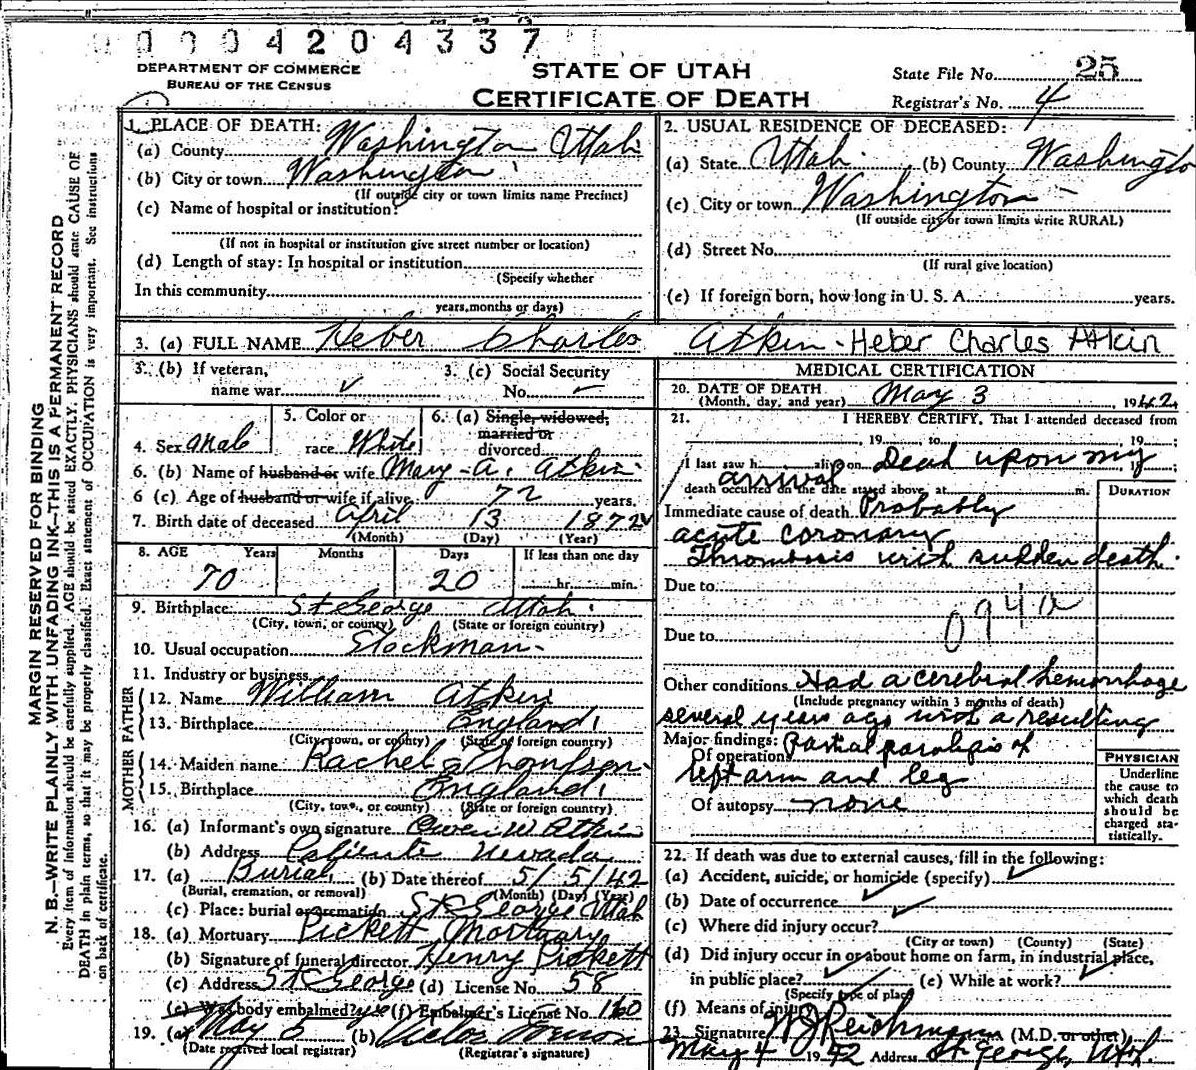 0004204337
DEPARTMENT OF COMMERCE
BUREAU OF THE CENSUS
STATE OF UTAH
CERTIFICATE OF DEATH
State File No. 25
Registrar's No. 4
MARGIN RESERVED FOR BINDING
N. B.—WRITE PLAINLY WITH UNFADING INK—THIS IS A PERMANENT RECORD
Every item of information should be carefully supplied. AGE should be stated EXACTLY. PHYSICIANS should state CAUSE OF
DEATH in plain terms, so that it may be properly classified. Exact statement of OCCUPATION is very important. See instructions
on back of certificate.
1. PLACE OF DEATH:
(a) County Washington Utah
(b) City or town Washington
(If outside city or town limits name Precinct)
(c) Name of hospital or institution:
(If not in hospital or institution give street number or location)
(d) Length of stay: In hospital or institution
(Specify whether
In this community
years, months or days)
2. USUAL RESIDENCE OF DECEASED:
(a) State Utah (b) County Washington
(c) City or town Washington
(If outside city or town limits write RURAL)
(d) Street No.
(If rural give location)
(e) If foreign born, how long in U. S. A. years.
3. (a) FULL NAME Heber Charles Atkin - Heber Charles Atkin
3. (b) If veteran,
name war ✓
3. (c) Social Security
No. ✓
4. Sex Male
5. Color or
race White
6. (a) Single, widowed,
married or
divorced
6. (b) Name of husband or wife Mary A. Atkin
6 (c) Age of husband or wife if alive 72 years.
7. Birth date of deceased April 13 1872
(Month) (Day) (Year)
8. AGE Years Months Days If less than one day
70 20 hr. min.
9. Birthplace St George Utah
(City, town, or county) (State or foreign country)
10. Usual occupation Stockman
11. Industry or business
FATHER
12. Name William Atkin
13. Birthplace England
(City, town, or county) (State or foreign country)
MOTHER
14. Maiden name Rachel Thompson
15. Birthplace England
(City, town, or county) (State or foreign country)
16. (a) Informant's own signature Owen W Atkin
(b) Address Caliente Nevada
17. (a) Burial (b) Date thereof 5/5/42
(Burial, cremation, or removal) (Month) (Day) (Year)
(c) Place: burial or cremation St George Utah
18. (a) Mortuary Pickett Mortuary
(b) Signature of funeral director Henry Pickett
(c) Address St George (d) License No. 58
(e) Was body embalmed? yes (f) Embalmer's License No. 160
19. (a) May 5 (b) Victor Iverson
(Date received local registrar) (Registrar's signature)
MEDICAL CERTIFICATION
20. DATE OF DEATH
(Month, day, and year) May 3, 1942
21. I HEREBY CERTIFY, That I attended deceased from
, 19 , to , 19 ;
I last saw h alive on Dead upon my , 19 ;
arrival
death occurred on the date stated above, at m.
DURATION
Immediate cause of death Probably
acute coronary
Thrombosis with sudden death.
Due to
094a
Due to
Other conditions Had a cerebral hemorrhage
(Include pregnancy within 3 months of death)
several years ago with a resulting
Major findings: Partial paralysis of
Of operation
left arm and leg
Of autopsy none
PHYSICIAN
Underline
the cause to
which death
should be
charged sta-
tistically.
22. If death was due to external causes, fill in the following:
(a) Accident, suicide, or homicide (specify) ✓
(b) Date of occurrence ✓
(c) Where did injury occur? ✓
(City or town) (County) (State)
(d) Did injury occur in or about home on farm, in industrial place,
in public place? ✓ (e) While at work? ✓
(Specify type of place
(f) Means of injury
23. Signature W J Reichmann (M.D. or other)
May 4 1942 Address St. George, Utah.